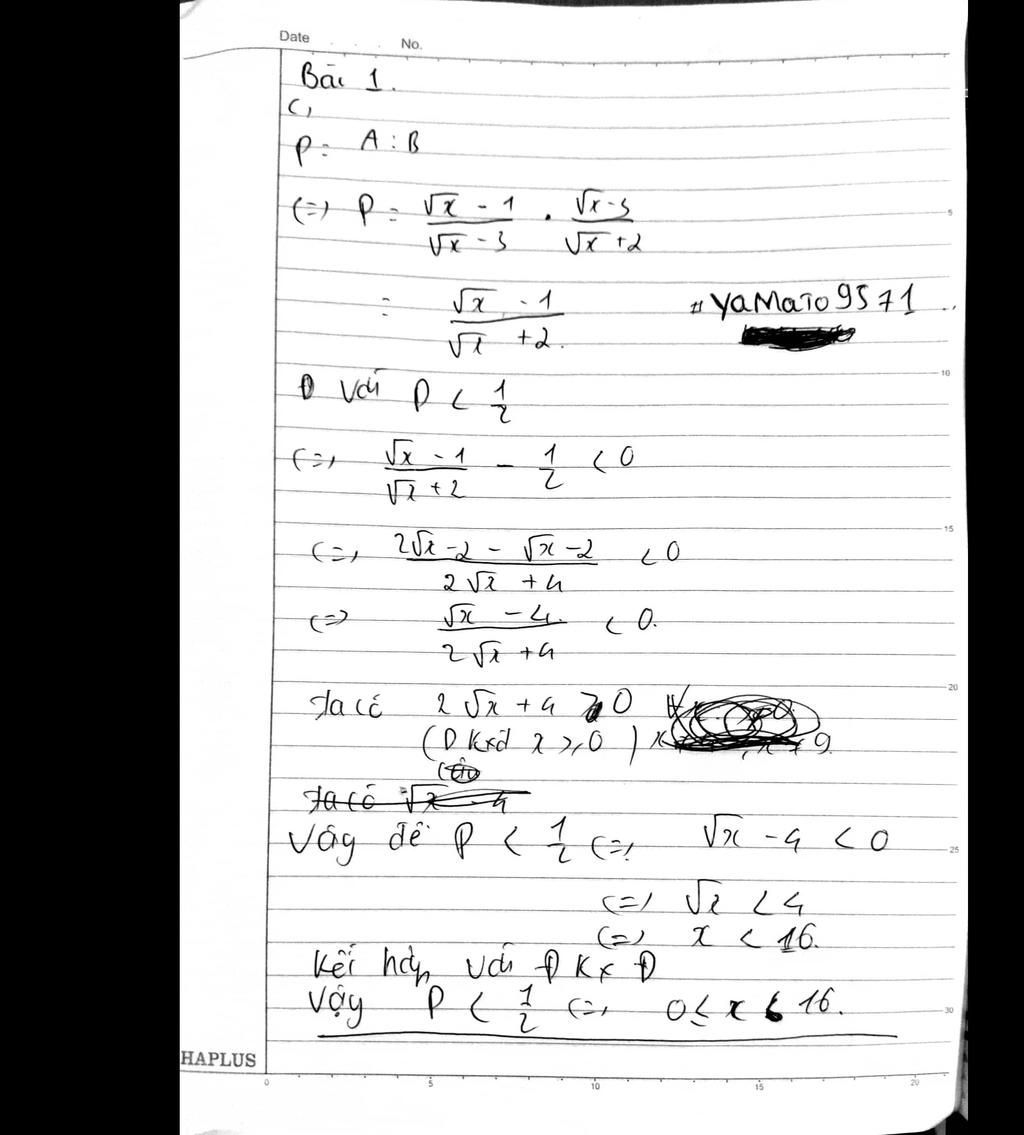 Date . . . . No.
Bài 1.
c,
P = A : B
(=) P = \frac{√x - 1}{√x - 3} . \frac{√x - 3}{√x + 2}
= \frac{√x - 1}{√x + 2}.
# YaMaTo9571
Với P < \frac{1}{2}
(=) \frac{√x - 1}{√x + 2} - \frac{1}{2} < 0
(=) \frac{2√x - 2 - √x - 2}{2√x + 4} < 0
(=) \frac{√x - 4}{2√x + 4} < 0.
Ta có 2√x + 4 > 0
(ĐKxđ x ≥ 0)
Vậy để P < \frac{1}{2} (=) √x - 4 < 0
(=) √x < 4
(=) x < 16.
Kết hợp với ĐKxĐ
Vậy P < \frac{1}{2} (=) 0 ≤ x < 16.
HAPLUS
5
10
15
20
25
30
0 5 10 15 20